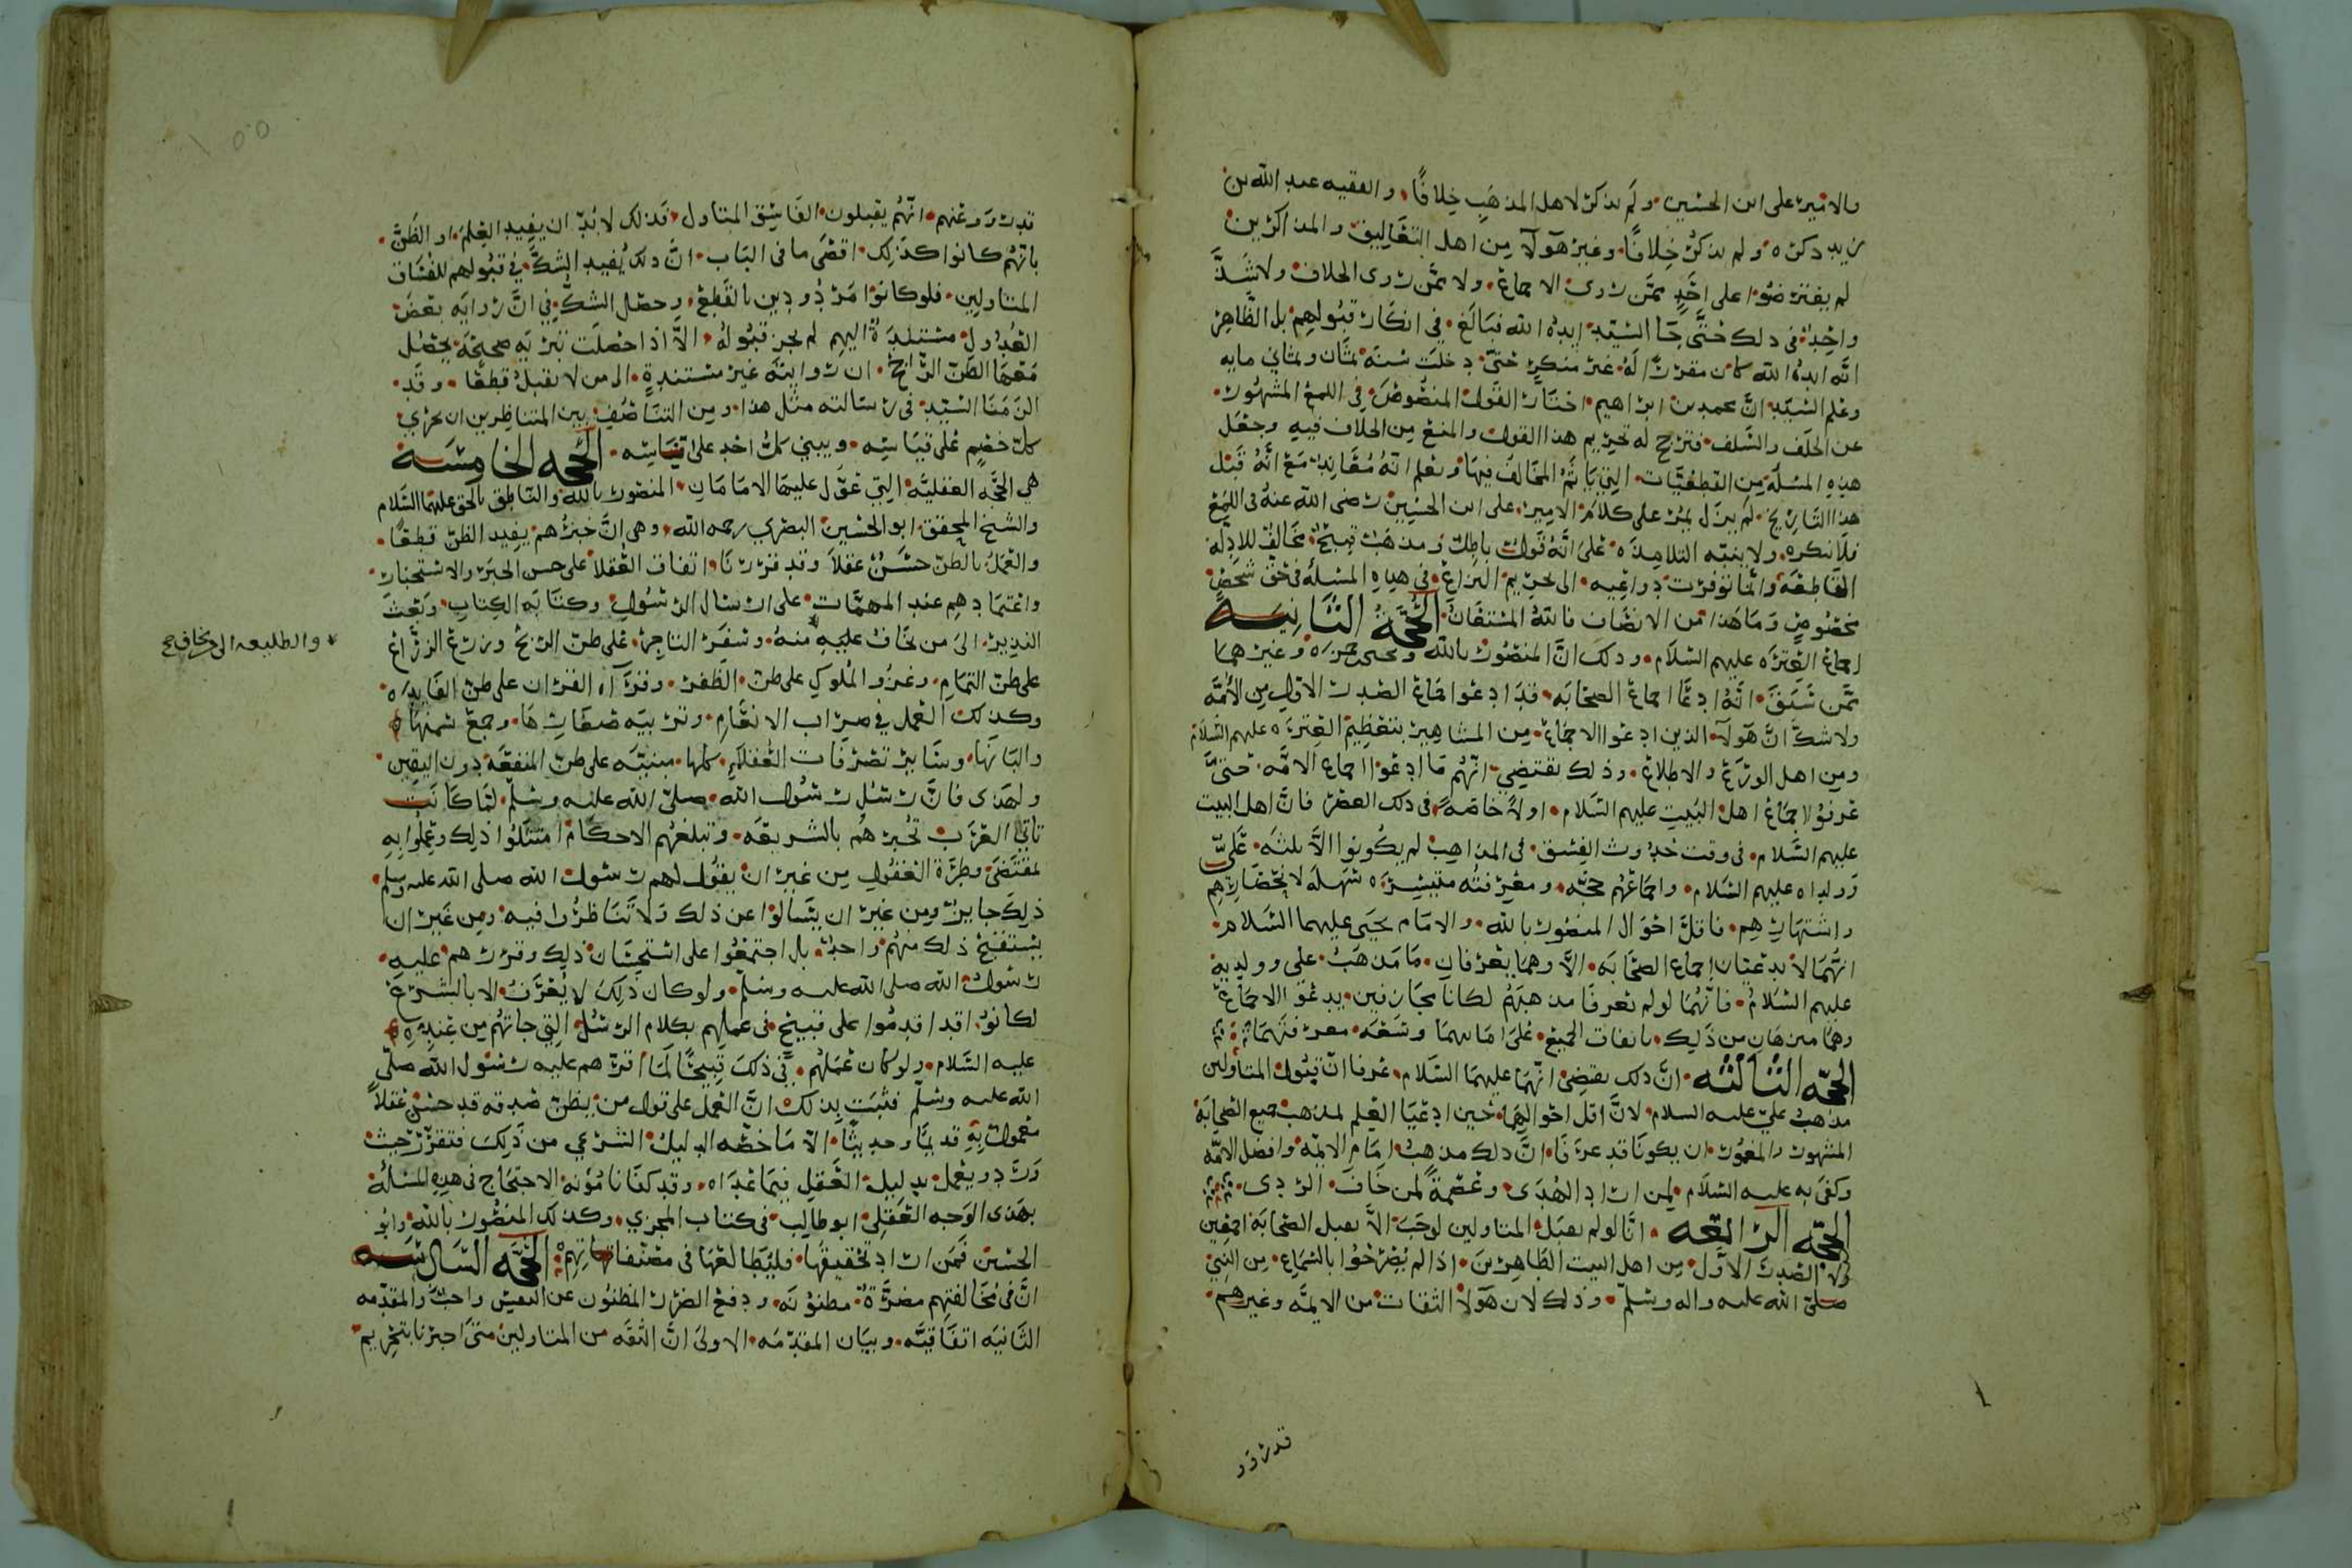 والامير على ابن الحسين ولم يذكر لاهل المذهب خلافًا والفقيه عبد الله بن
زيد ذكره ولم يذكر خلافًا وغير هولآ من اهل التعاليق والمذاكرين
لم يعترضوا على احدٍ ممن روى الاجماع ولا ممن روى الخلاف ولا شذَّ
واحد في ذلك حتَّى جا السيد ايده الله فبالغ في انكار قبولهم بل الظاهر
انه ايده الله كان مقررًا له غير منكرٍ حتى دخلت سنة ثمان وثماني مايه
وعلم السيد ان محمد بن ابراهيم اختار القول المنصوص في اللمع المشهور
عن الخلف والسلف فترجح له تحريم هذا القول والمنع من الخلاف فيه وجعل
هذه المسلة من القطعيات التي ياثم المخالف فيها ويعلم انه معاند مع انه قبل
هذا التاريخ لم يزل يمر على كلام الامير على ابن الحسين رضى الله عنه في اللمع
فلا نكره ولا ينبه التلامذه على انه قول باطل ومذهب قبيح مخالف للادله
القاطعه وانما توفرت دواعيه الى تحريم النزاع في هذه المسلة في حق شخص
مخصوص وما هذا من الانصاف فالله المستعان الحجة الثانيه
اجماع العترة عليهم السلام وذلك ان المنصور بالله ويحيى بن حمزه وغيرهما
ممن سبق انه ادعا اجماع الصحابه قد ادعوا اجماع الصدر الاول من الأمه
ولا شك ان هولآ الذين ادعوا الاجماع من المشاهير بتعظيم العتره عليهم السلام
ومن اهل الورع والاطلاع وذلك يقتضي انهم ما ادعوا اجماع الامه حتى
عرفوا اجماع اهل البيت عليهم السلام اولًا خاصه في ذلك العصر فان اهل البيت
عليهم السلام في وقت حدوث الفسق في المذاهب لم يكونوا الا ثلثه عليّ
وولداه عليهم السلام واجماعهم حجه ومعرفته متيسره سهله لانحصارهم
واشتهارهم فاقل احوال المنصور بالله والامام يحيى عليهما السلام
انهما لا يدعيان اجماع الصحابه الا وهما يعرفان ما مذهب علي وولديه
عليهم السلام فانهما لو لم يعرفا مذهبهم لكانا مجازفين بدعوى الاجماع
وهما منزهان من ذلك باتفاق الجميع على امانتهما وسعه معرفتهما
الحجه الثالثه ان ذلك يقتضي انهما عليهما السلام عرفا ان قبول المتاولين
مذهب علي عليه السلام لان اقل احوالهما حين ادعيا العلم لمذهب جميع الصحابة
المشهور والمغمور ان يكونا قد عرفا ان ذلك مذهب امام الايمه وافضل الامه
وكفى به عليه السلام لمن اراد الهدى وعصمةً لمن خاف الردى
الحجه الرابعه انا لو لم نقبل المتاولين لوجب الا نقبل الصحابه اجمعين
ولا الصدر الاول من اهل البيت الطاهرين اذا لم يصرحوا بالسماع من النبي
صلى الله عليه واله وسلم وذلك لان هولآ الثقات من الايمه وغيرهم
قدرور
قد رووعنهم انهم يقبلون الفاسق المتاول فذلك لا بد ان يفيد العلم او الظن
بانهم كانوا كذلك اقصى ما في الباب ان ذلك يفيد الشك في قبولهم للفساق
المتاولين فلو كانوا مردودين بالقطع وحصل الشك في ان روايه بعض
العدول مستندة اليهم لم يجز قبوله الا اذا حصلت قرينه صحيحه يحصل
معها الظن الراجح ان روايته غير مستندةٍ الى من لا يقبل قطعًا وقد
الزمنا السيد في رسالته مثل هذا ومن التناصف بين المتناظرين ان يجري
كل خصمٍ على قياسه ويبني كل احد على اساسه الحجه الخامسة
هي الحجه العقليه التي عول عليها الامامان المنصور بالله والناطق بالحق عليهما السلام
والشيخ المحقق ابو الحسين البصري رحمه الله وهى ان خبرهم يفيد الظن قطعًا
والعمل بالظن حسن عقلاً وقد قررنا اتفاق العقلا على حسن الخبر والاستخبار
واعتمادهم عند المهمات على ارسال الرسول وكتابه الكتاب وبعث
النذير الى من يخاف عليه منه وسفر التاجر على ظن الربح وزرع الزراع
على ظن التمام وغزو الملوك على ظن الظفر وقرآه القران على ظن الفايده
وكذلك العمل في ضراب الانعام وتربيه صغارها وجمع سمنها
والبانها وساير تصرفات العقلآ كلها مبنيه على ظن المنفعه دون اليقين
ولهذى فان رسل رسول الله صلى الله عليه وسلم لما كانت
تاتي العرب تخبرهم بالشريعه وتبلغهم الاحكام امتثلوا ذلك وعملوا به
لمقتضى وطرة العقول من غير ان يقول لهم رسول الله صلى الله عليه وسلم
ذلك جايز ومن غير ان يتسالوا عن ذلك ولا تناظروا فيه ومن غير ان
يستقبح ذلك منهم واحد بل اجتمعوا على استحسان ذلك وقررهم عليه
رسول الله صلى الله عليه وسلم ولو كان ذلك لا يعرف الا بالشرع
لكانوا قد اقدموا على قبيح في عملهم بكلام الرسل التي جاتهم من عنده
عليه السلام ولو كان عملهم في ذلك قبيحًا لما اقرهم عليه رسول الله صلى
الله عليه وسلم فثبت بذلك ان العمل على قول من يظن صدقه قد حسن عقلاً
معمول به قديمًا وحديثًا الا ما خصه الدليل الشرعي من ذلك فتقرر حيث
ورد ويعمل بدليل العقل فيما عداه وقد كفانا مؤنه الاحتجاج في هذه المسلة
بهذى الوجه العقلي ابو طالب في كتاب المجزي وكذلك المنصور بالله وابو
الحسين فمن اراد تحقيقها فليطالعها في مصنفاتهم الحجه السادسه
ان في مخالفتهم مضرة مظنونه ودفع الضرر المظنون عن النفس واجب والمقدمه
الثانيه اتفاقيه وبيان المقدمه الاولى ان الثقه من المتاولين متى اخبرنا بتحريم
والطليعه الى